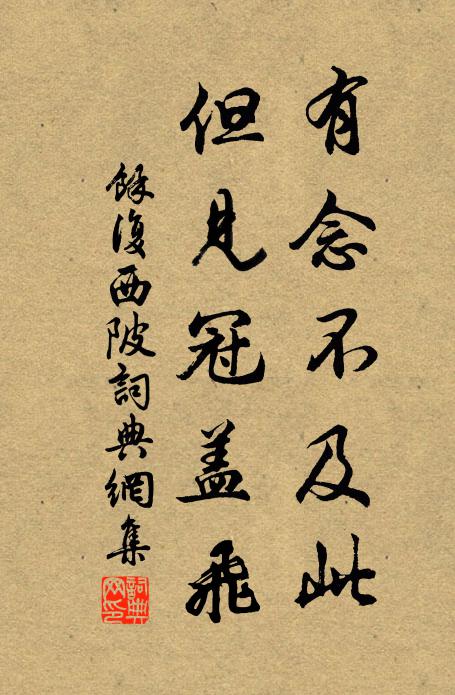 有念不及此
但見冠盖飛
餘復西陂詞典網集
詞典網印